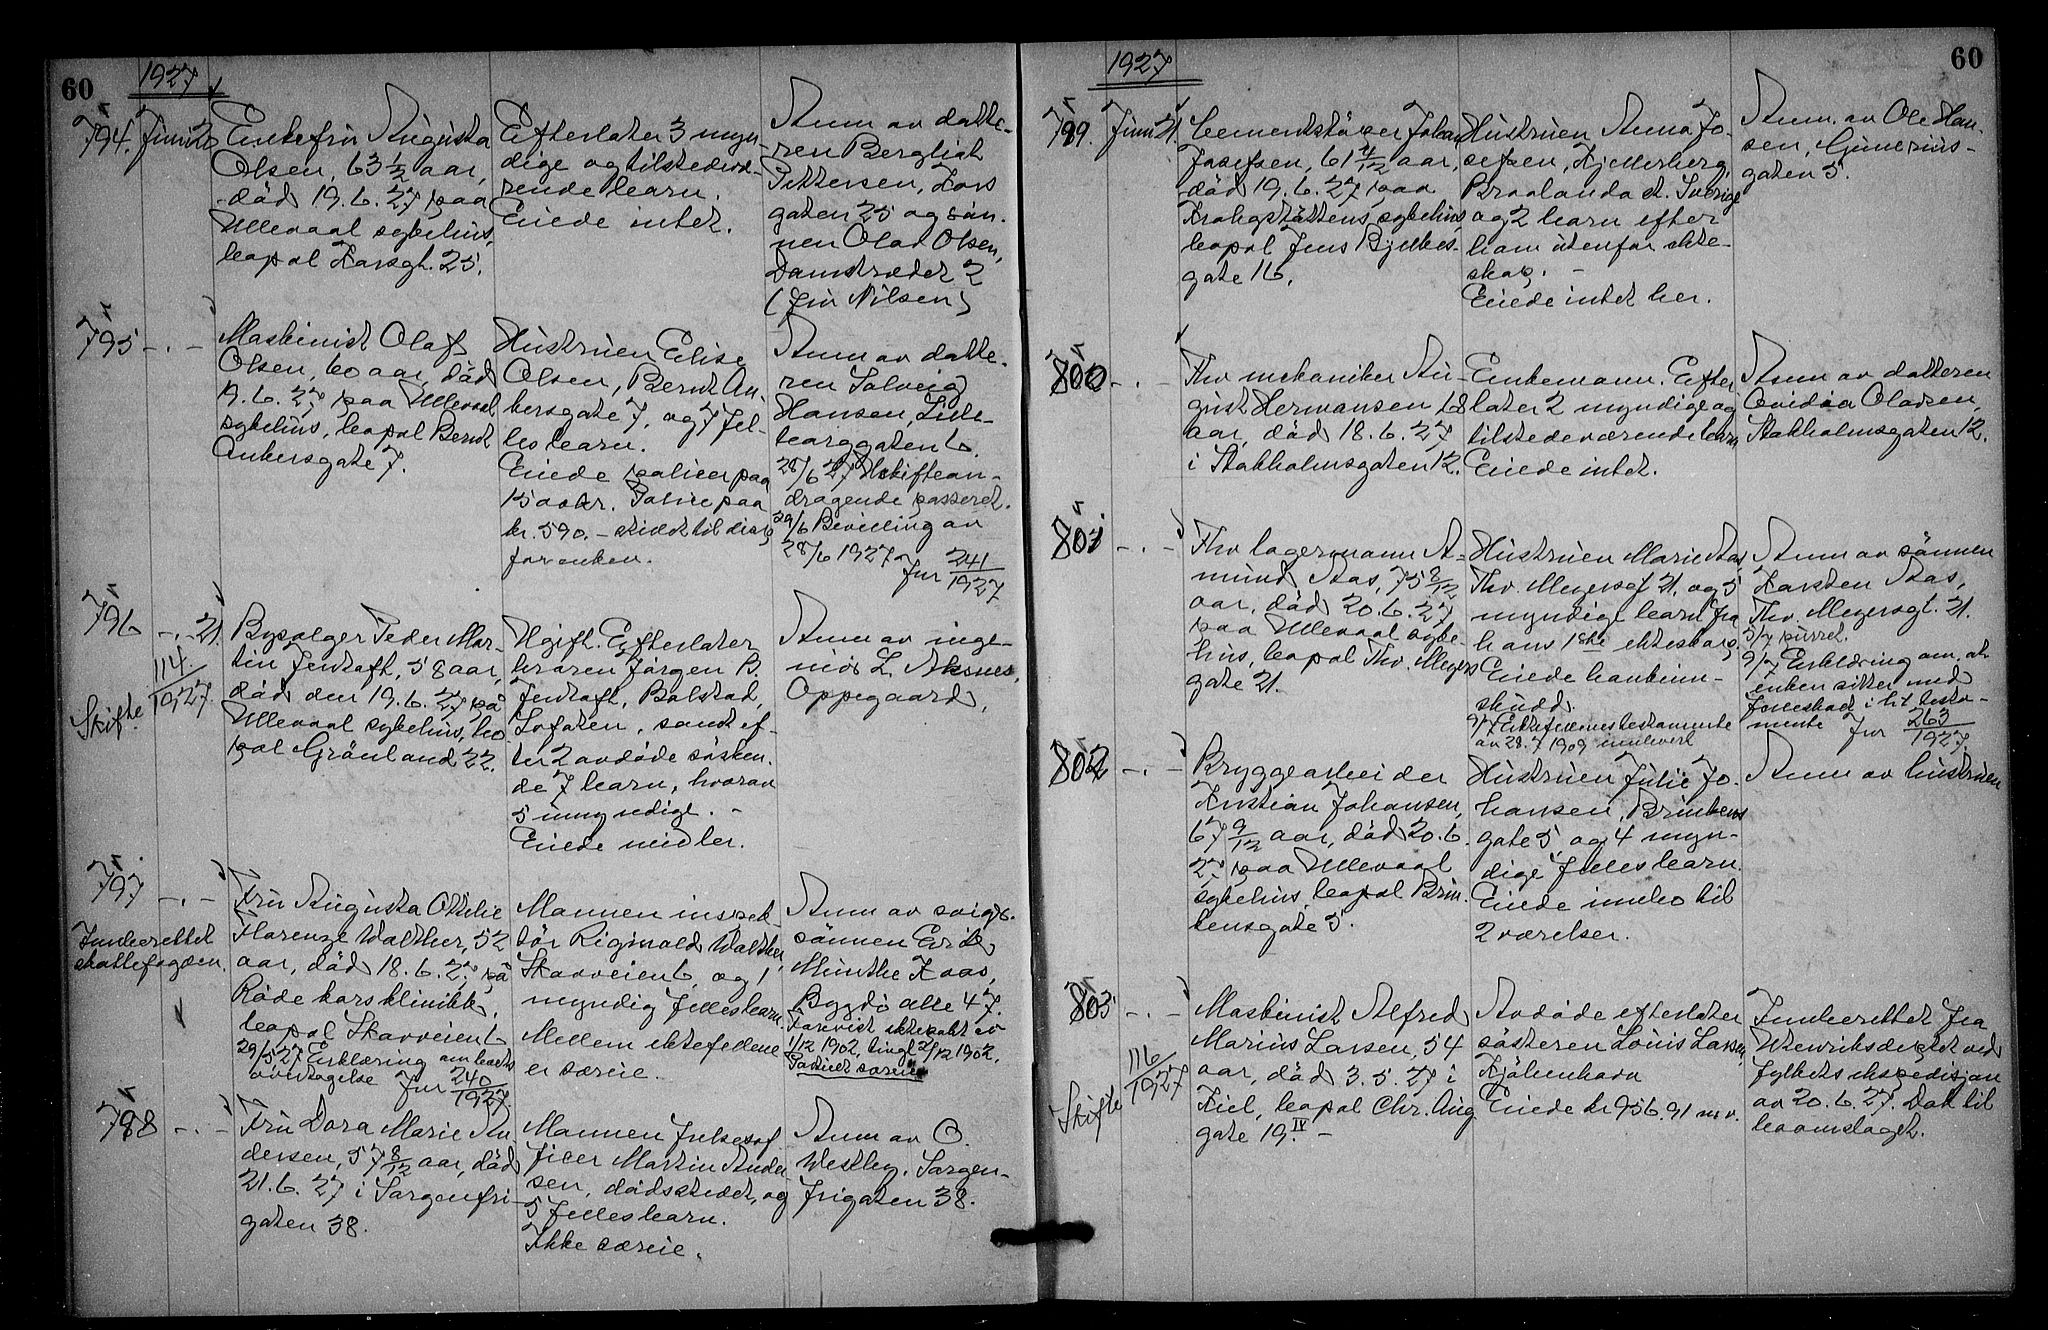 60
1927
794. Juni 20
Enkefru Augusta
Olsen, 63 1/2 aar,
død 19.6.27 paa
Ullevaal sykehus,
bopæl Korsgt. 25.
Efterlater 3 myn-
dige og tilstedevæ-
rende barn.
Eiede intet.
Anm. av datte-
ren Bergliot
Pettersen, Kors
gaten 25 og søn-
nen Olav Olsen,
Damstrædet 2
(fru Nilsen)
795 -.-
Maskinist Olaf
Olsen, 60 aar, død
19.6.27 paa Ullevaal
sykehus, bopæl Bernt
Ankersgate 7.
Hustruen Elise
Olsen, Bernt An-
kersgate 7, og 7 fel-
les barn.
Eiede police paa
1500 kr. Police paa
kr. 590.-
for enken.
Anm av datte-
ren Solveig
Hansen, Liste-
28/6 27
dragende passeret.
29/6 Bevilling av
28/6 1927
Jnr 241/1927
796 -.- 21.
114./1927.
Skifte.
Bysælger Peder Mar-
tin Jentoft, 58 aar,
død den 19.6.27 på
Ullevaal sykehus, bo-
pæl Grönland 22.
Ugift. Efterlater
broren Jørgen B.
Jentoft, Bolstad,
Lofoten, samt ef-
ter 2 avdøde søsken-
de 7 barn, hvorav
5 umyndige. -
Eiede midler.
Anm av inge-
niør L. Aksnes,
Oppegaard.
797 -.-
Innberettet
skattefogden.
Fru Augusta Ottilie
Florenze Walther, 52
aar, død 18.6.27 på
Røde kors klinikk,
bopæl Skovveien 6
29/5 27 Erklæring om boets
overtagelse Jnr 240/1927.
Mannen inspek-
tør Riginald Walther,
Skovveien 6, og 1
myndig fellesbarn.
Mellem ektefellene
er særeie.
Anm av svigs.
sønnen Erik
Munthe Kaas,
Bygdö alle 47.
Forevist ektepakt av
1/12 1902, tingl. 2/12 1902.
798 -.-
Fru Dora Marie An
dersen, 57 8/12 aar, død
21.6.27 i Sorgenfri-
gaten 38.
Mannen
Martin Ander
sen, dødsstedet, og
5 fellesbarn.
Ikke særeie.
Anm av O.
Westley, Sorgen-
frigaten 38.
60
1927
799. Juni 21.
Cementstøper Johan
Josefsen, 61 aar,
død 19.6.27 paa
Krohgstøttens sykehus
bopæl Jens Bjelkes-
gate 16.
Hustruen Anna Jo-
sefsen, Kjellerberg,
Braalanda st. Sverige
og 2 barn efter
ham utenfor ekte-
skap. -
Eiede intet her.
Anm. av Ole Han-
sen, Gunerius-
gaten 5.
800 -.-
Fhv mekaniker Au-
gust Hermansen 68
aar, død 18.6.27
i Stokholmsgaten 12.
Enkemann. Efter
later 2 myndige og
tilstedeværende barn
Eiede intet.
Anm av datteren
Ovidia Olavsen,
Stokholmsgaten 12.
801 -.-
Fhv lagermann A-
mund Aas, 75 8/12
aar, død 20.6.27
paa Ullevaal syke-
hus, bopæl Thv. Meyers
gate 21.
Hustruen Marie Aas,
Thv. Meyersgt 21, og 5
myndige barn fra
hans 1ste ekteskap.
Eiede
skudd.
9/7 Ektefællenes testamente
av 28.7 1909 innlevert
Anm av sønnen
Karsten Aas,
Thv. Meyersgt. 21.
5/7 purret.
9/7 Erklæring om, at
enken sitter med
felleskab i h.t. testa-
mente Jnr 263/1927.
802 -.-
Bryggearbeider
Kristian Johansen,
67 9/12 aar, død 20.6.
27 paa Ullevaal
sykehus, bopæl Brin-
kensgate 5.
Hustruen Julie Jo-
hansen, Brinkens
gate 5, og 4 myn-
dige felles barn.
Eiede innbo til
2 værelser.
Anm av hustruen
803. -.-
116/1927
Skifte
Maskinist Alfred
Marius Larsen, 54
aar, død 3.5.27 i
Kiel, bopæl Chr. Aug
gate 19.IV -
Avdøde efterlater
søsteren Louis Larsen,
Kjöbenhavn
Eiede kr 956.91 m.v.
Innberettet fra
Utenriksdeptet ved
fylkets ekspedisjon
av 20.6.27. Dok til
boomslaget.